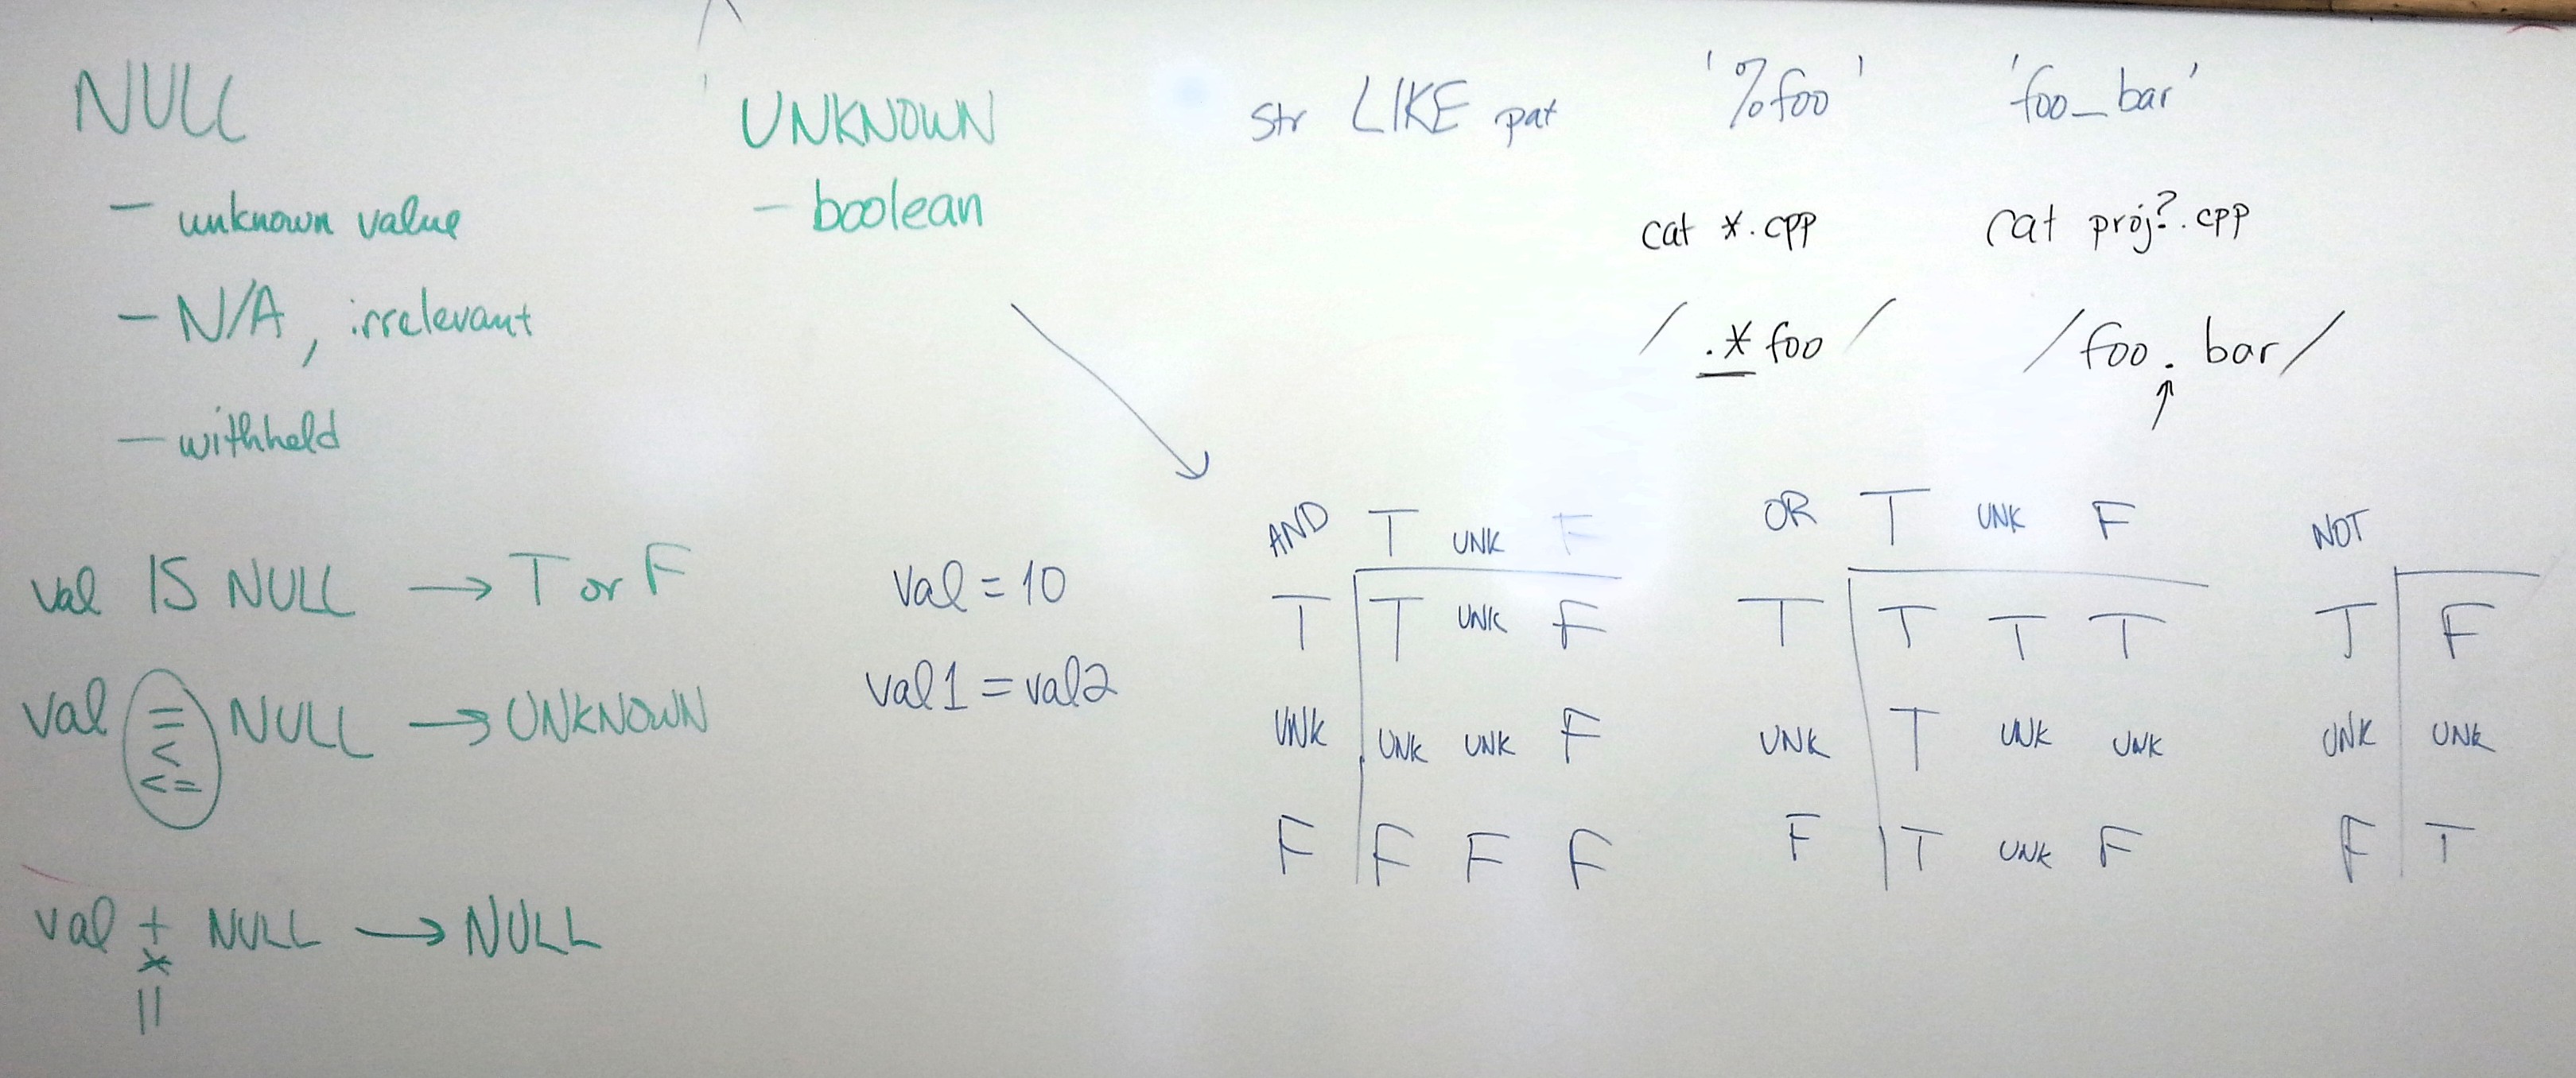 NULL
- unknown value
- N/A, irrelevant
- withheld
val IS NULL → T or F
val = NULL → UNKNOWN
<
<=
val + NULL → NULL
*
||
UNKNOWN
- boolean
val = 10
val1 = val2
str LIKE pat '%foo' 'foo_bar'
cat *.cpp cat proj?.cpp
/.*foo/ /foo.bar/
↑
AND T UNK F
T T UNK F
UNK UNK UNK F
F F F F
OR T UNK F
T T T T
UNK T UNK UNK
F T UNK F
NOT
T F
UNK UNK
F T